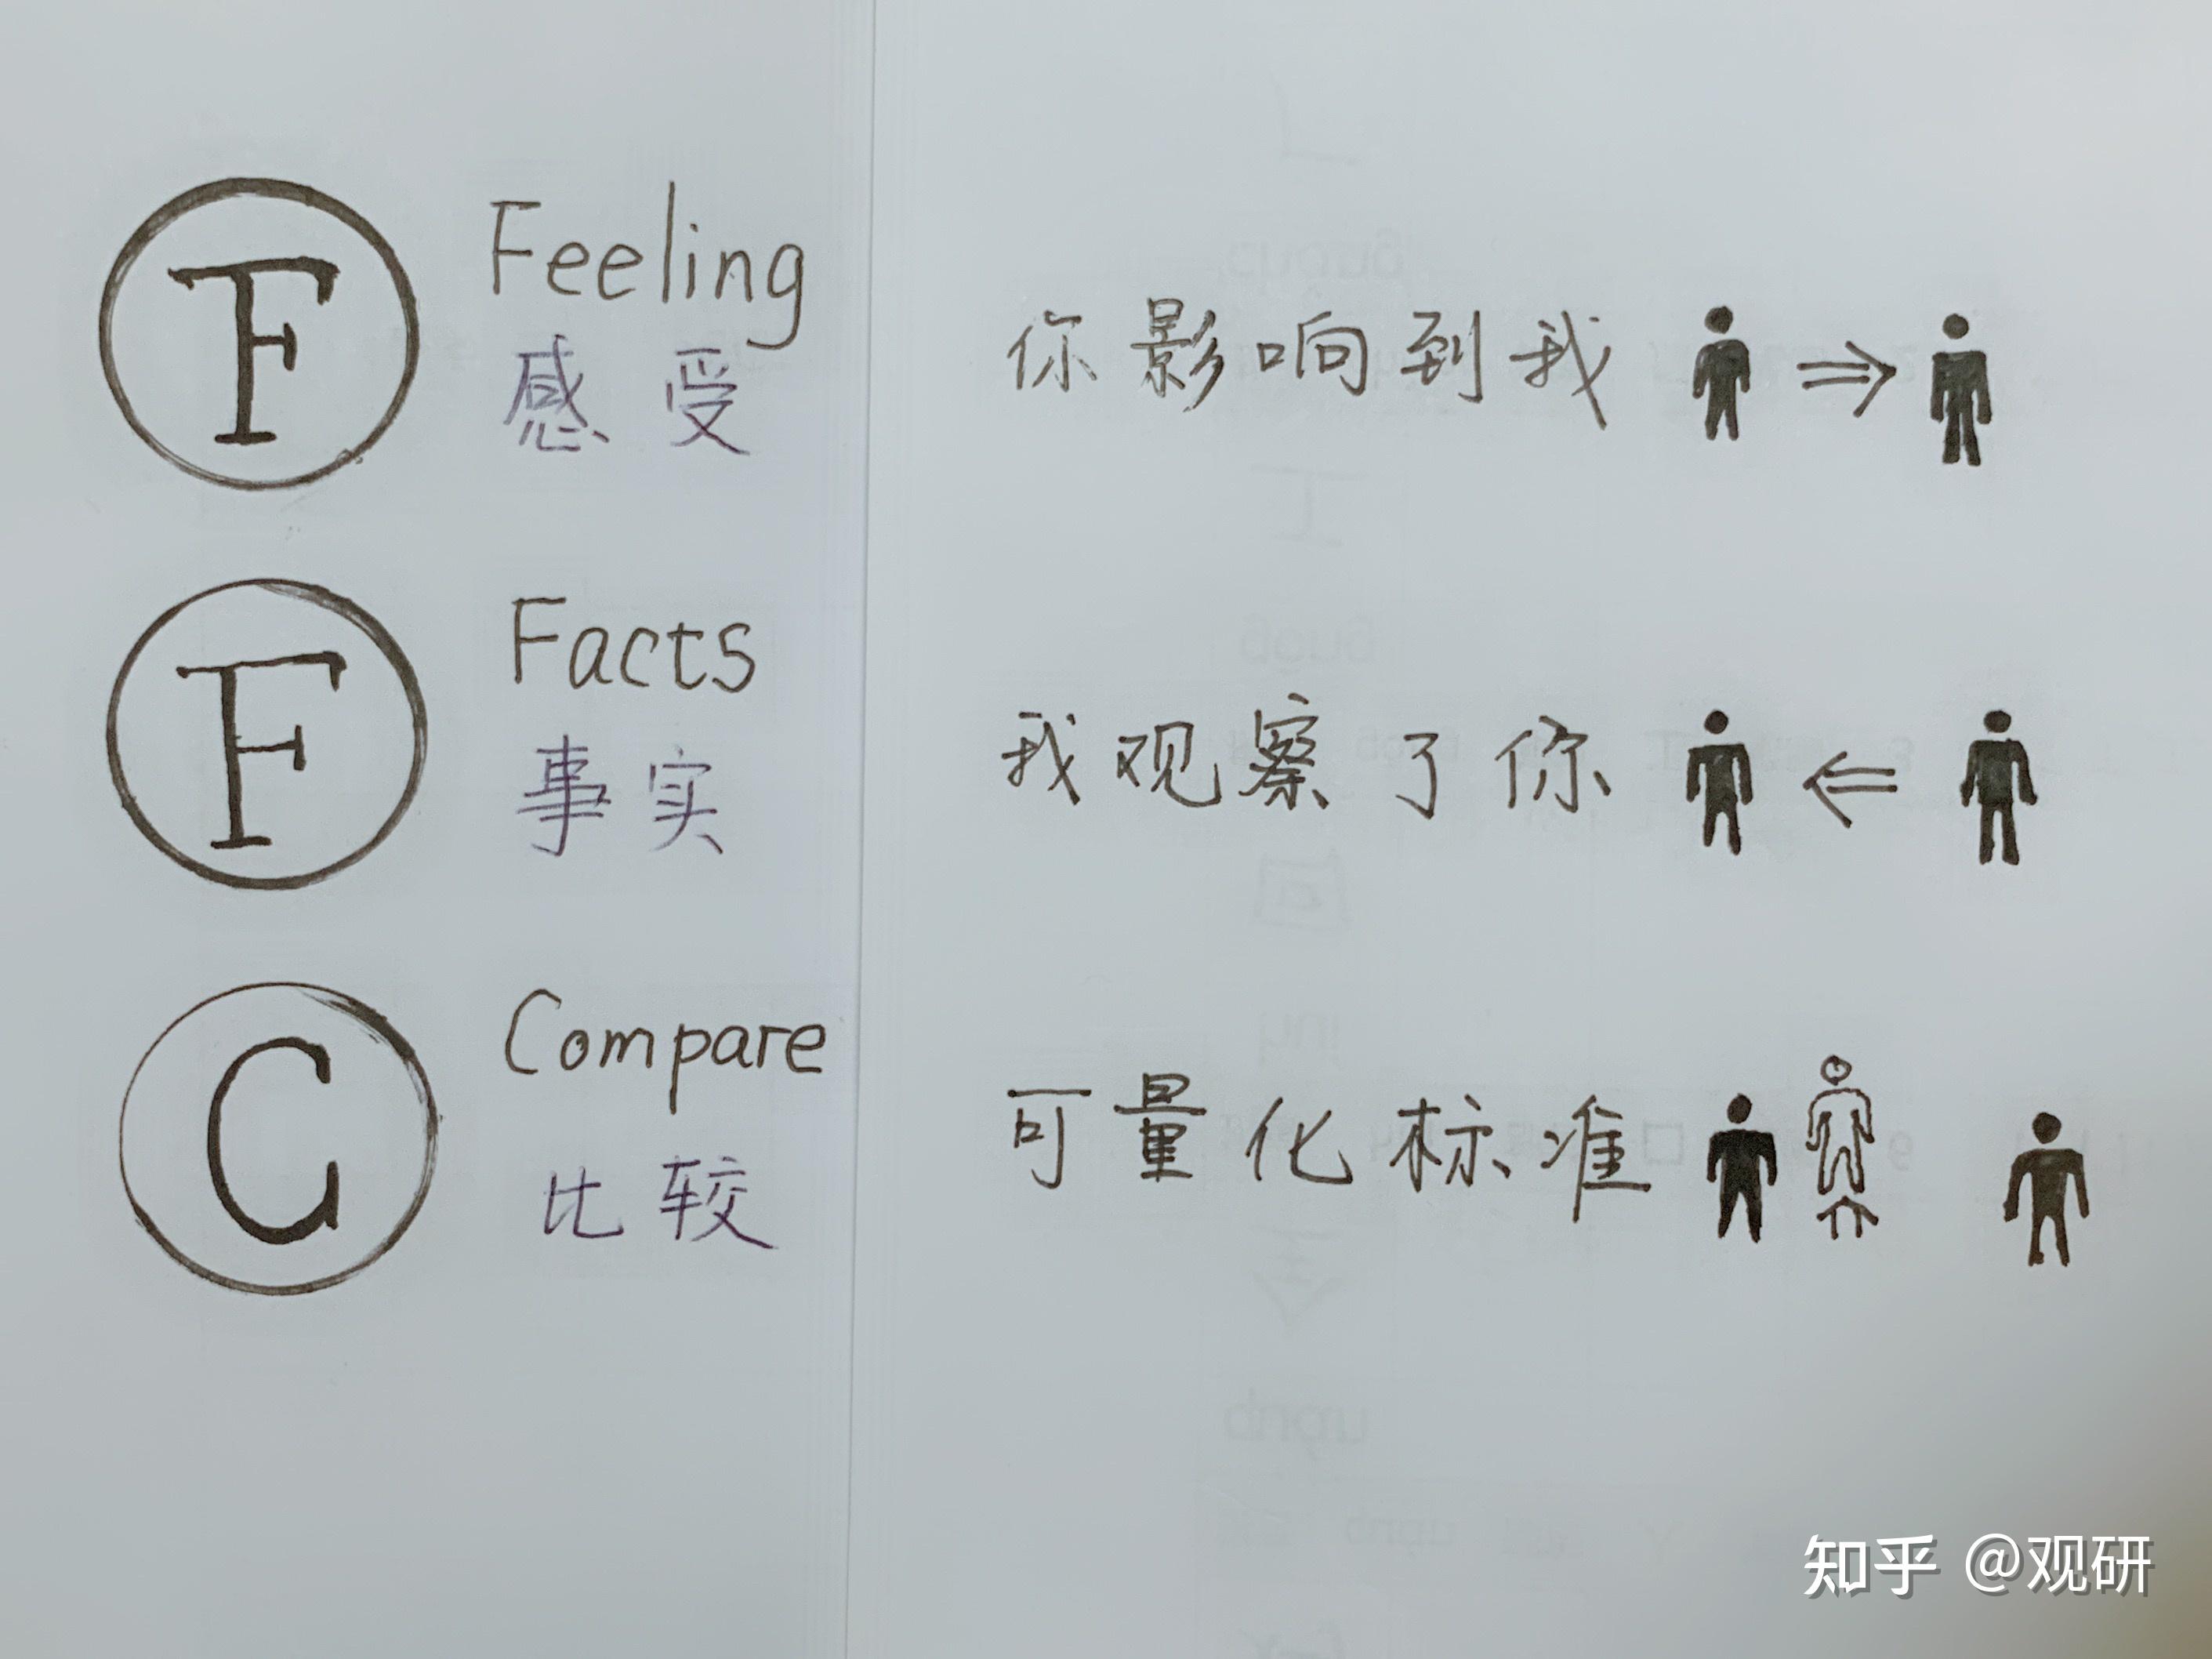 F
Feeling
感受
你影响到我
F
Facts
事实
我观察了你
C
Compare
比较
可量化标准
知乎 @观研